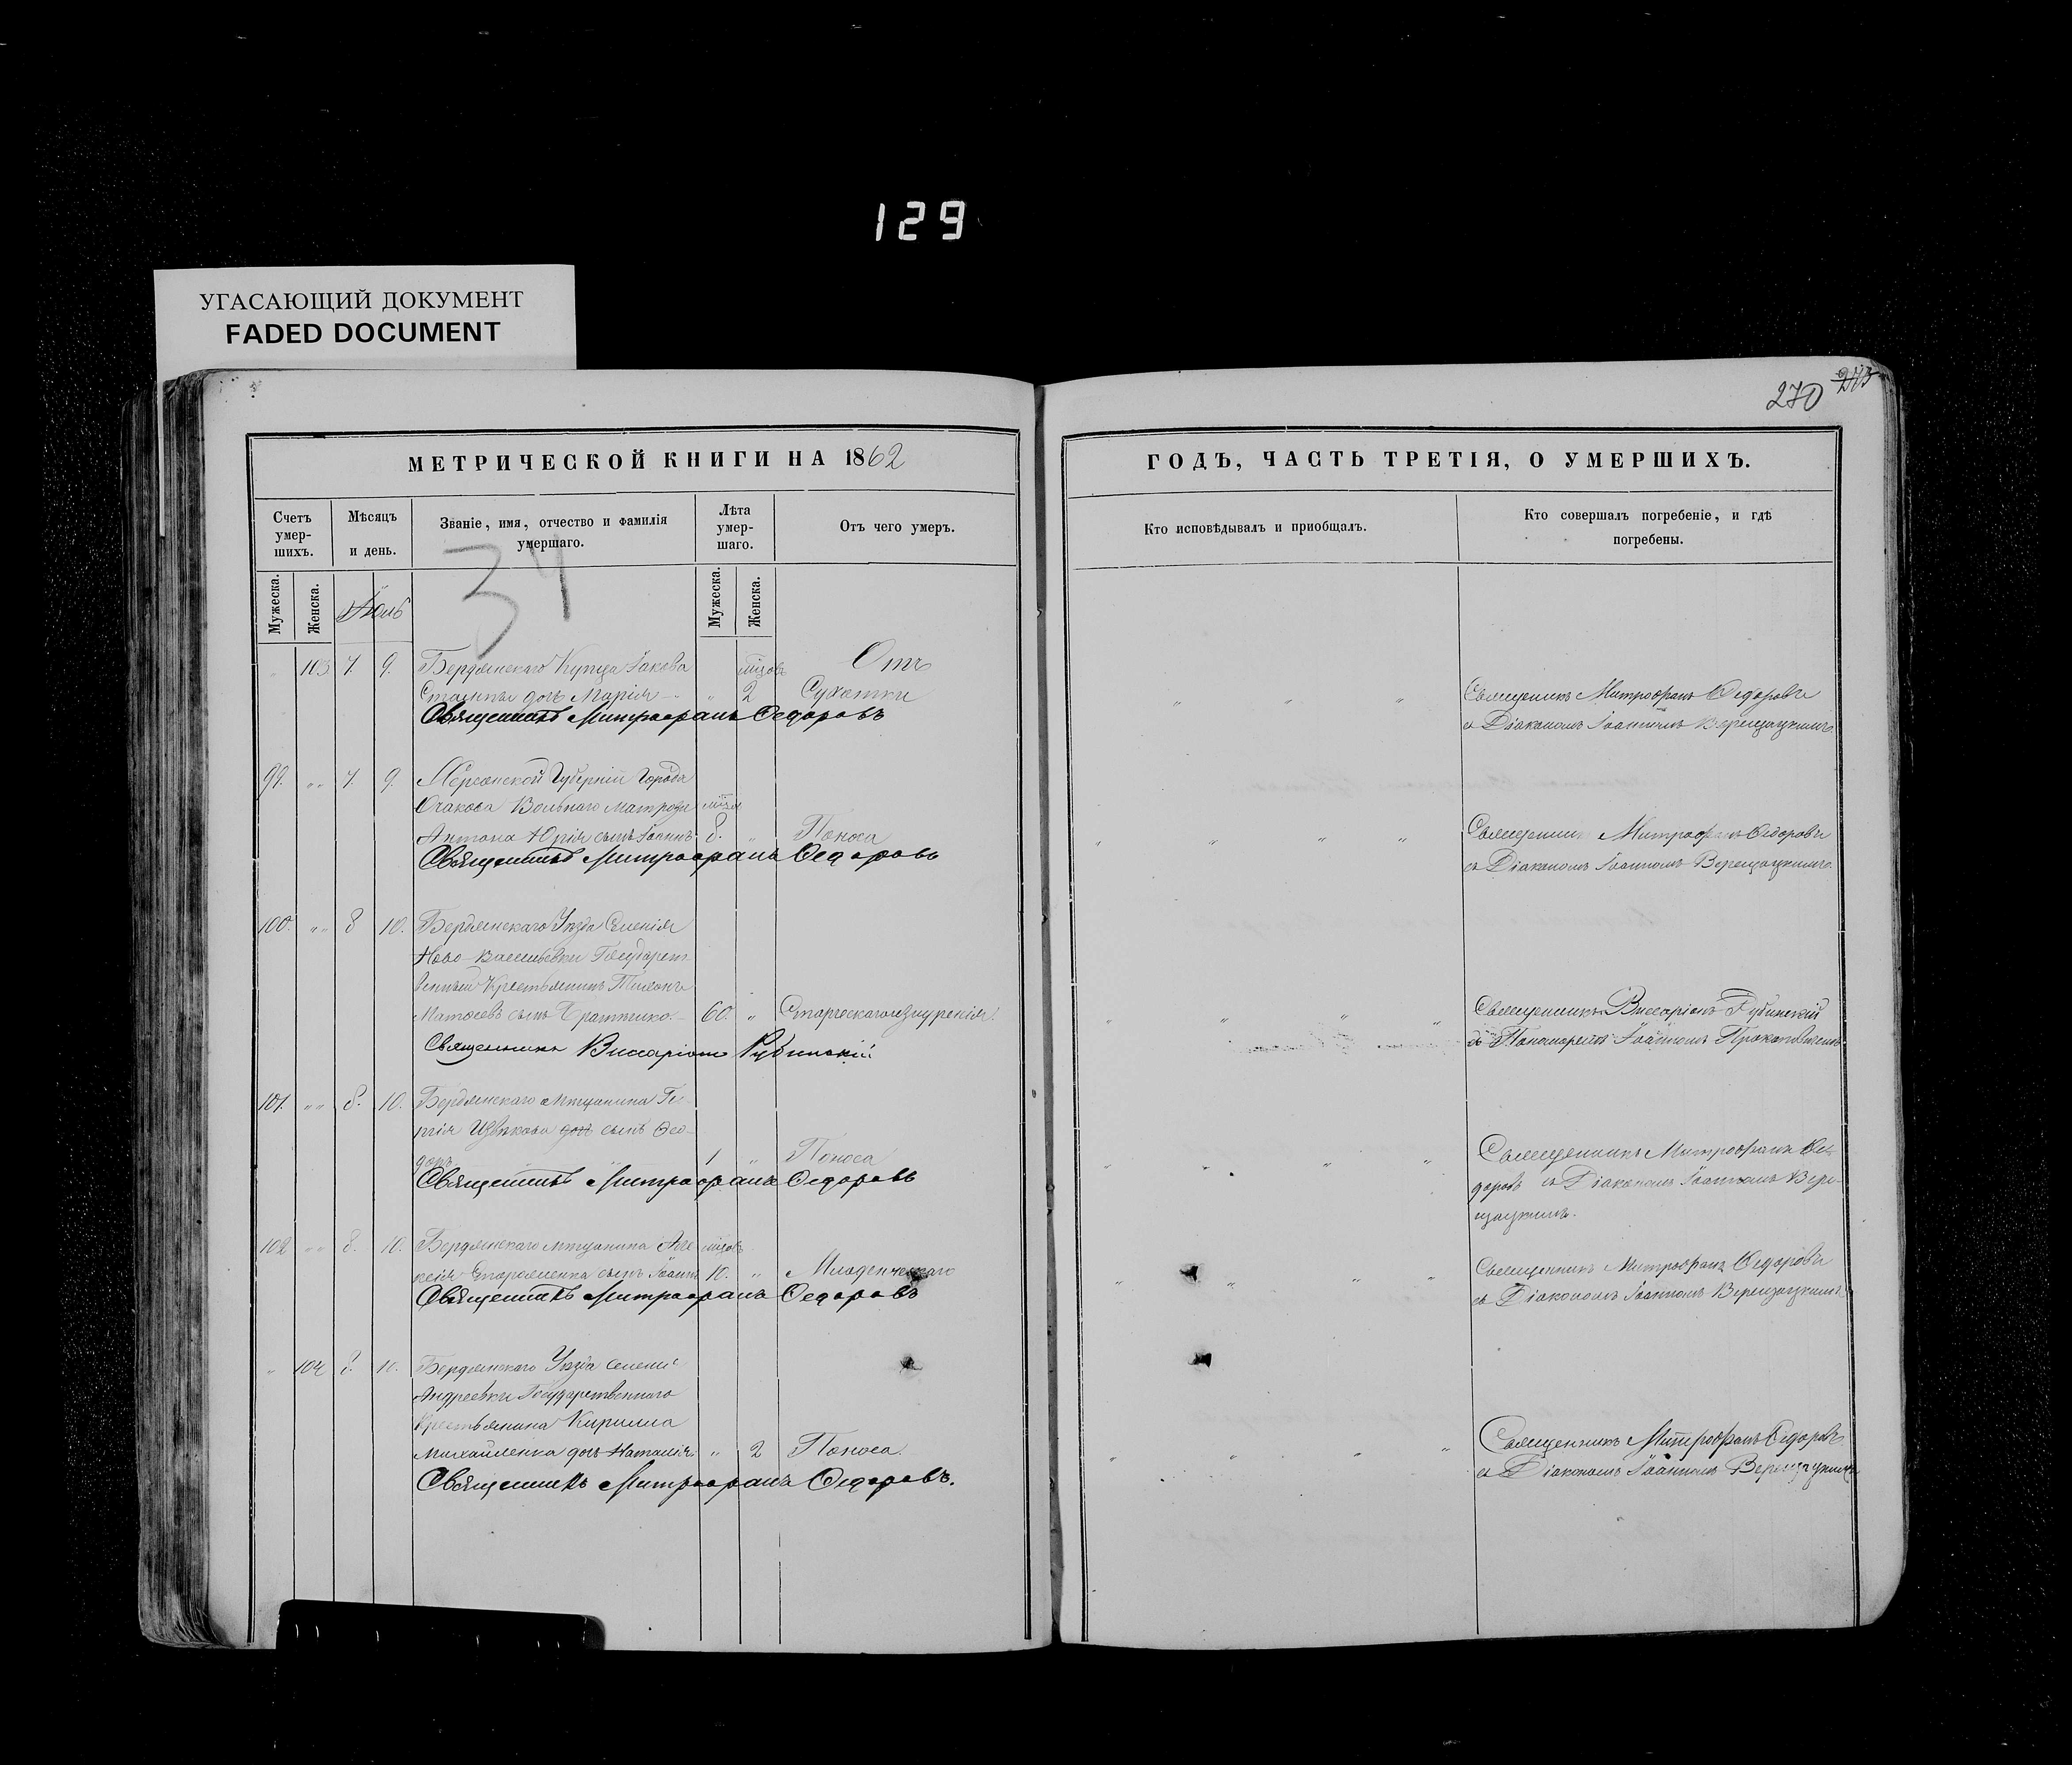 129
УГАСАЮЩИЙ ДОКУМЕНТ
FADED DOCUMENT
270 273
МЕТРИЧЕСКОЙ КНИГИ НА 1862
Счетъ умер-шихъ.
Мѣсяцъ и день.
Званіе, имя, отчество и фамилія умершаго.
Лѣта умер-шаго.
Отъ чего умеръ.
Мужеска.
Женска.
Іюль
34
Мужеска.
Женска.
103 7. 9. Бердянскаго Купца Іакова Отъ
дочь Марія " 2 Сухотки
Священникъ Митрофанъ Ѳедоровъ
99. " " 7. 9. Херсонской Губерніи Города
Очакова Вольнаго Матроса
Антона Юрія сынъ Іоаннъ 8. " Поноса
Священникъ Митрофанъ Ѳедоровъ
100. " " 8 10. Бердянскаго Уѣзда Селенія
Ново-Васильевки Государст
венный Крестьянинъ Тихонъ
сынъ 60. " Старческаго изнуренія.
Священникъ Виссаріонъ Рубинскій
101. " " 8. 10. Бердянскаго Мѣщанина Ге-
ргія дочь сынъ Ѳео-
доръ 1 " Поноса
Священникъ Митрофанъ Ѳедоровъ
102 " " 8. 10. Бердянскаго Мѣщанина Але
ксія сынъ Іоаннъ 10. " Младенческаго
Священникъ Митрофанъ Ѳедоровъ
" 104 8. 10. Бердянскаго Уѣзда Селенія
Андреевки Государственнаго
Крестьянина Кирилла
Михайленка дочь Наталія " 2 Поноса.
Священникъ Митрофанъ Ѳедоровъ.
ГОДЪ, ЧАСТЬ ТРЕТІЯ, О УМЕРШИХЪ.
Кто исповѣдывалъ и приобщалъ.
Кто совершалъ погребеніе, и гдѣ погребены.
Священникъ Митрофанъ Ѳедоровъ
съ Діакономъ Іоанномъ Верещацкимъ.
Священникъ Митрофанъ Ѳедоровъ
съ Діакономъ Іоанномъ Верещацкимъ.
Священникъ Виссаріонъ Рубинскій
съ Пономаремъ Іоанномъ Прокоповичемъ
Священникъ Митрофанъ Ѳе-
доровъ съ Діакономъ Іоанномъ Вере-
щацкимъ.
Священникъ Митрофанъ Ѳедоровъ
съ Діакономъ Іоанномъ Верещацкимъ
Священникъ Митрофанъ Ѳедоровъ
съ Діакономъ Іоанномъ Верещацкимъ